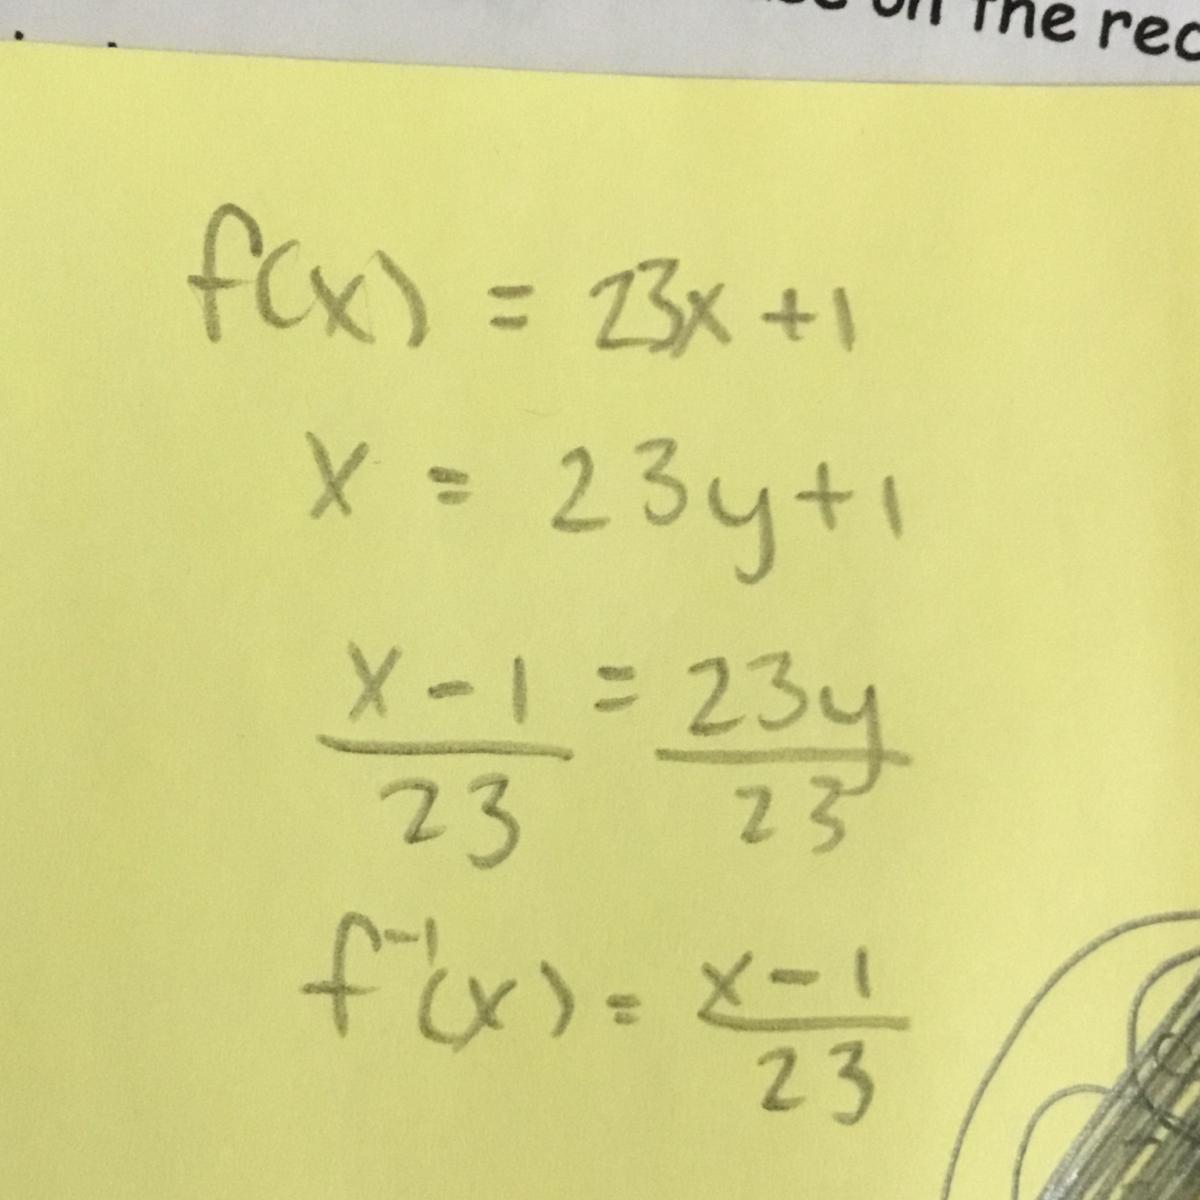 on the rec
f(x) = 23x + 1
x = 23y + 1
x - 1 = 23y
23 23
f⁻¹(x) = x - 1
23